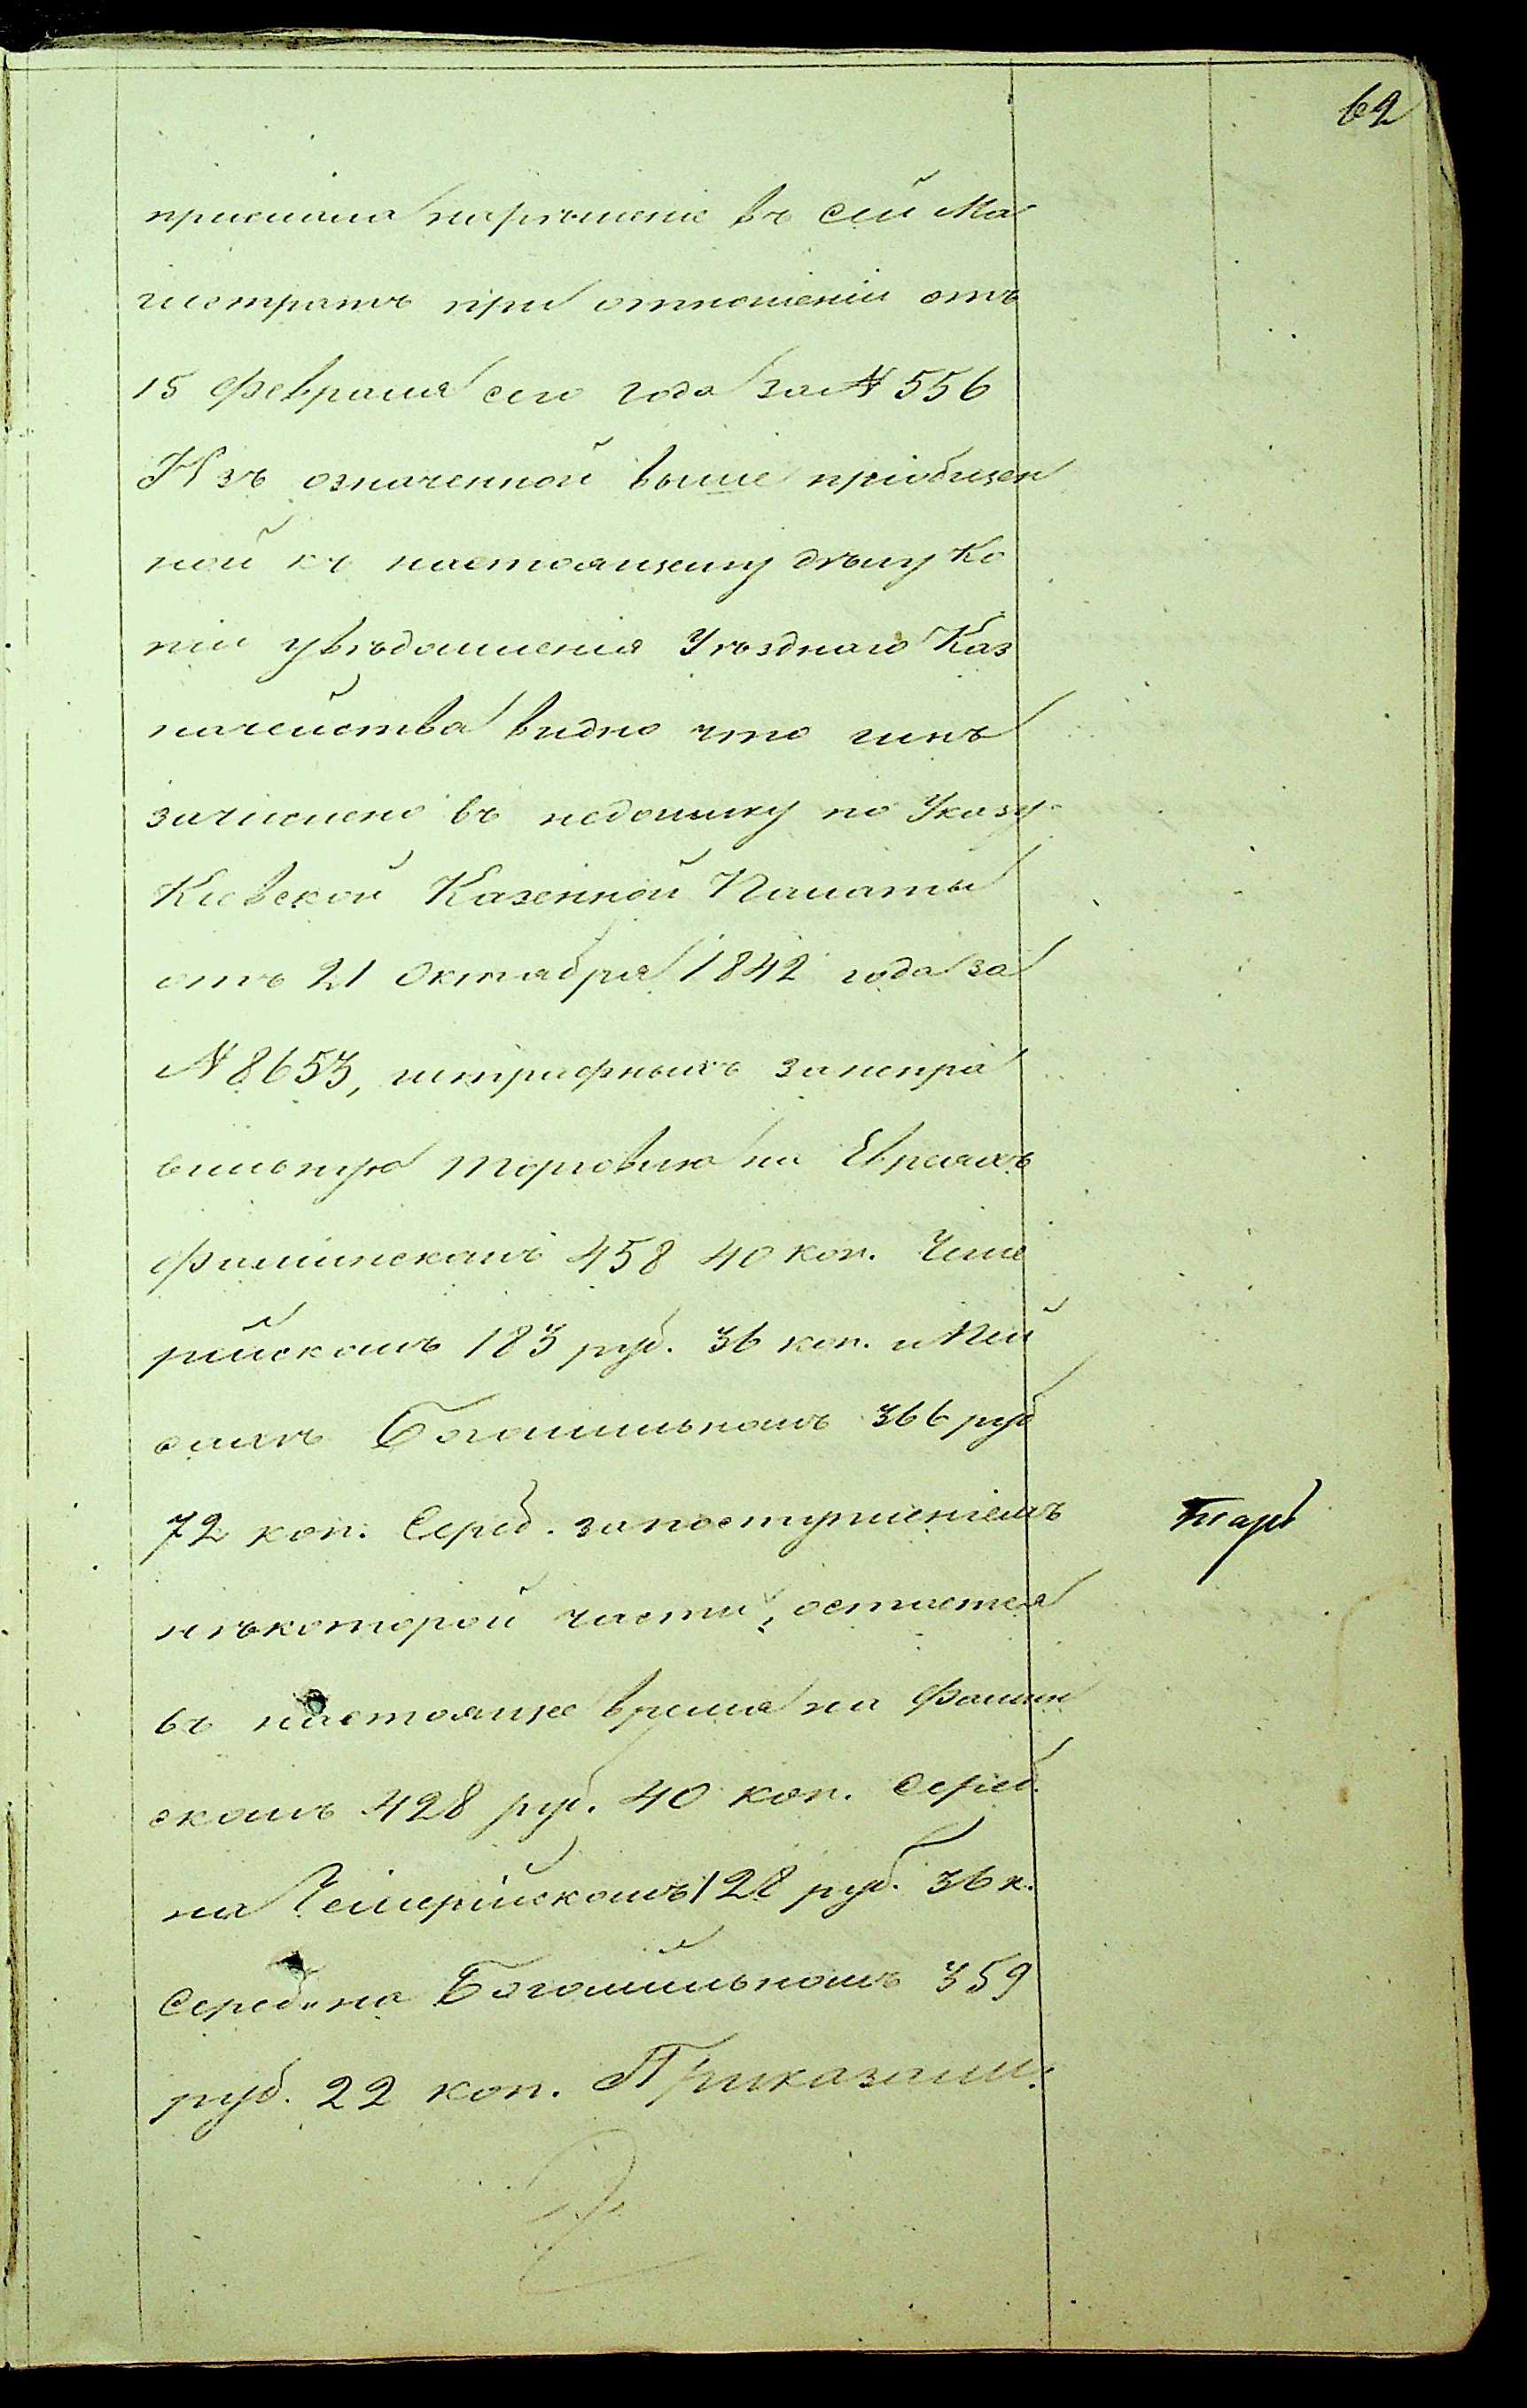 62
прислала нарѣшеніе въ сей Ма
гистратъ при отношеніи отъ
15 февраля сего года за № 556
Изъ означенной выше пріобщен
ной къ настоящему дѣлу Ко
піи увѣдомленія Уѣзднаго Каз
начейства видно что имъ
зачислено въ недоимку по Указу
Кіевской Казенной Палаты
отъ 21 Октября 1842 года за
№ 8653, штрафныхъ за непра
вильную торговлю на Евреяхъ
Фаминскомъ 458 40 коп. Чеме
рийскомъ 183 руб. 36 коп. и Лей
Богомильномъ 366 руб
72 коп. Сереб. запоступленіемъ
нѣкоторой части, остается
въ настоящее время на Фамин
скомъ 428 руб. 40 коп. сереб.
на Чемерийскомъ 128 руб. 36 к.
Сереб. и на Богомильномъ 359
руб. 22 коп. Приказали: